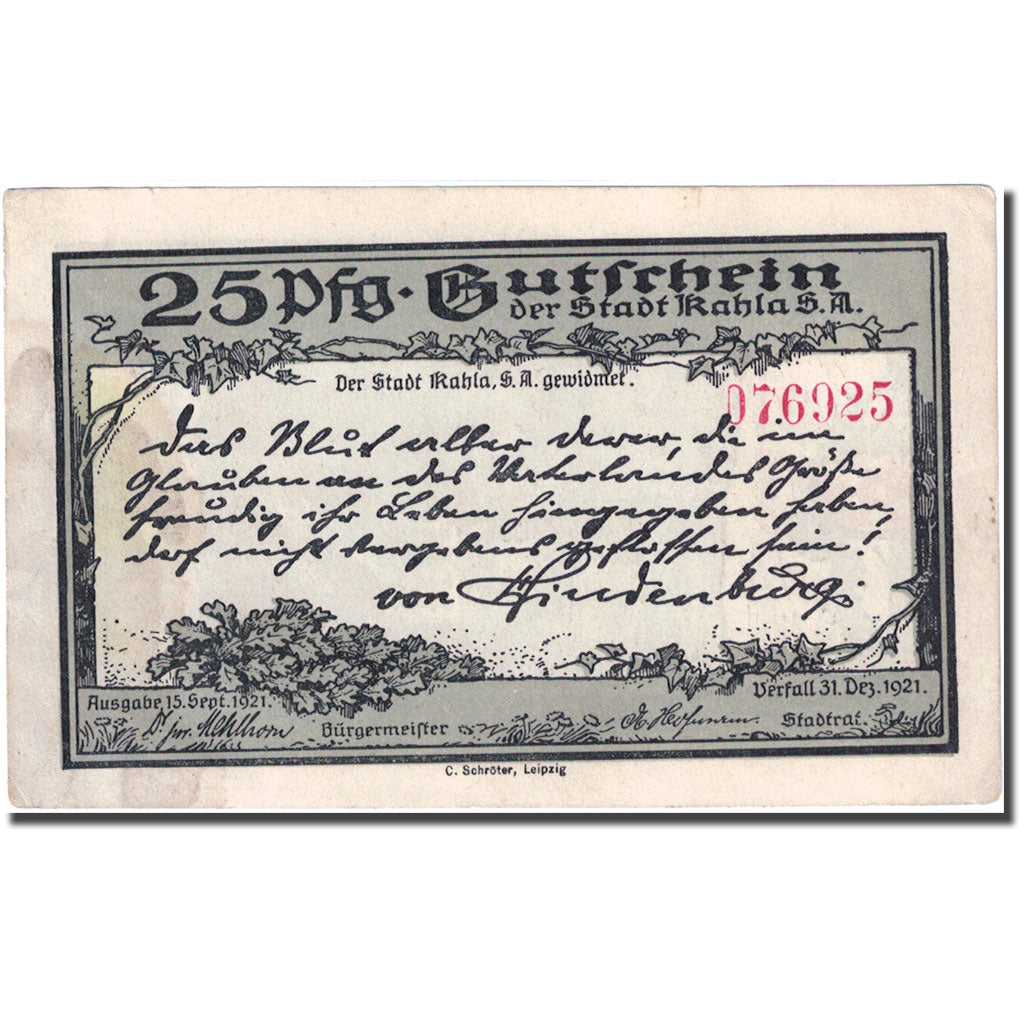 25 Pfg. Gutschein
der Stadt Kahla S.A.
Der Stadt Kahla, S.A. gewidmet.
076925
Das Blut aller derer, die im
Glauben an des Vaterlandes Größe
freudig ihr Leben hingegeben haben,
darf nicht vergebens geflossen sein!
von Hindenburg.
Ausgabe 15. Sept. 1921.
Verfall 31. Dez. 1921.
Dr. jur. Mehlhorn Bürgermeister
Stadtrat.
C. Schröter, Leipzig